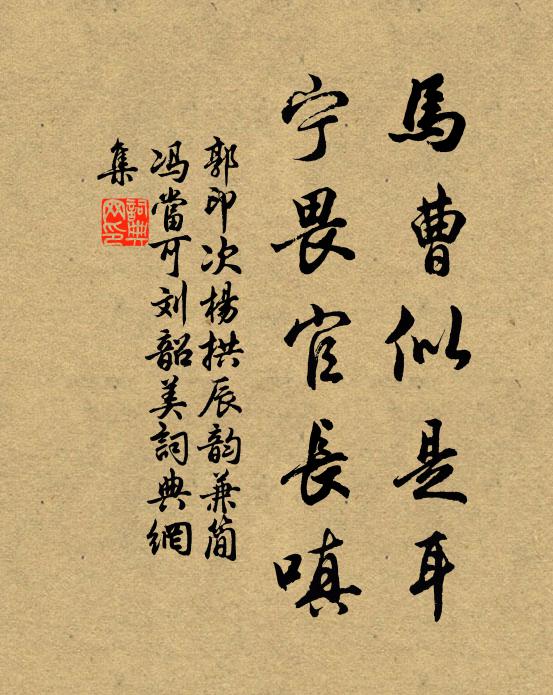 馬曹似是耳
宁畏官長嗔
郭印次楊拱辰韵兼简
冯當可刘韶美詞典網
集
詞典網印